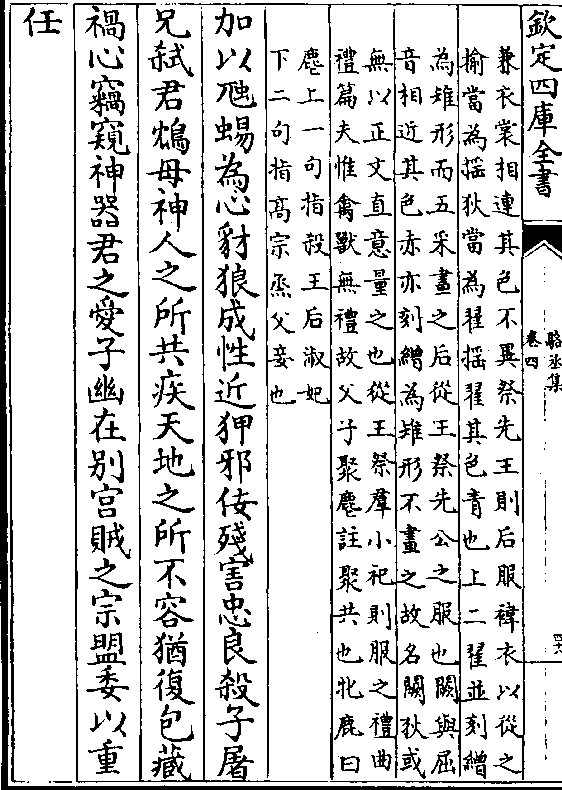 欽定四庫全書
駱丞集
卷四
四六
兼衣裳相連其色不異祭先王則后服褘衣以從之
揄當為搖狄當為翟搖翟其色青也上二翟並刻繒
為雉形而五采畫之后從王祭先公之服也闕與屈
音相近其色赤亦刻繒為雉形不畫之故名闕狄或
無以正文直意量之也從王祭羣小祀則服之禮曲
禮篇夫惟禽獸無禮故父子聚麀註聚共也牝鹿曰
麀上一句指殺王后淑妃
下二句指高宗烝父妾也
加以虺蜴為心豺狼成性近狎邪佞殘害忠良殺子屠
兄弑君鴆母神人之所共疾天地之所不容猶復包藏
禍心竊窺神器君之愛子幽在别宫賊之宗盟委以重
任